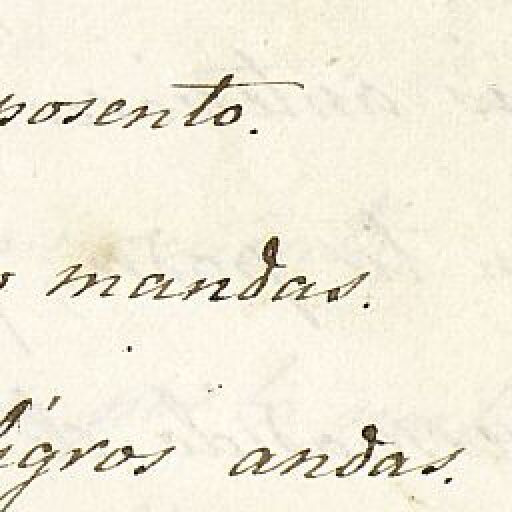 posento.
o mandas.
ligros andas.